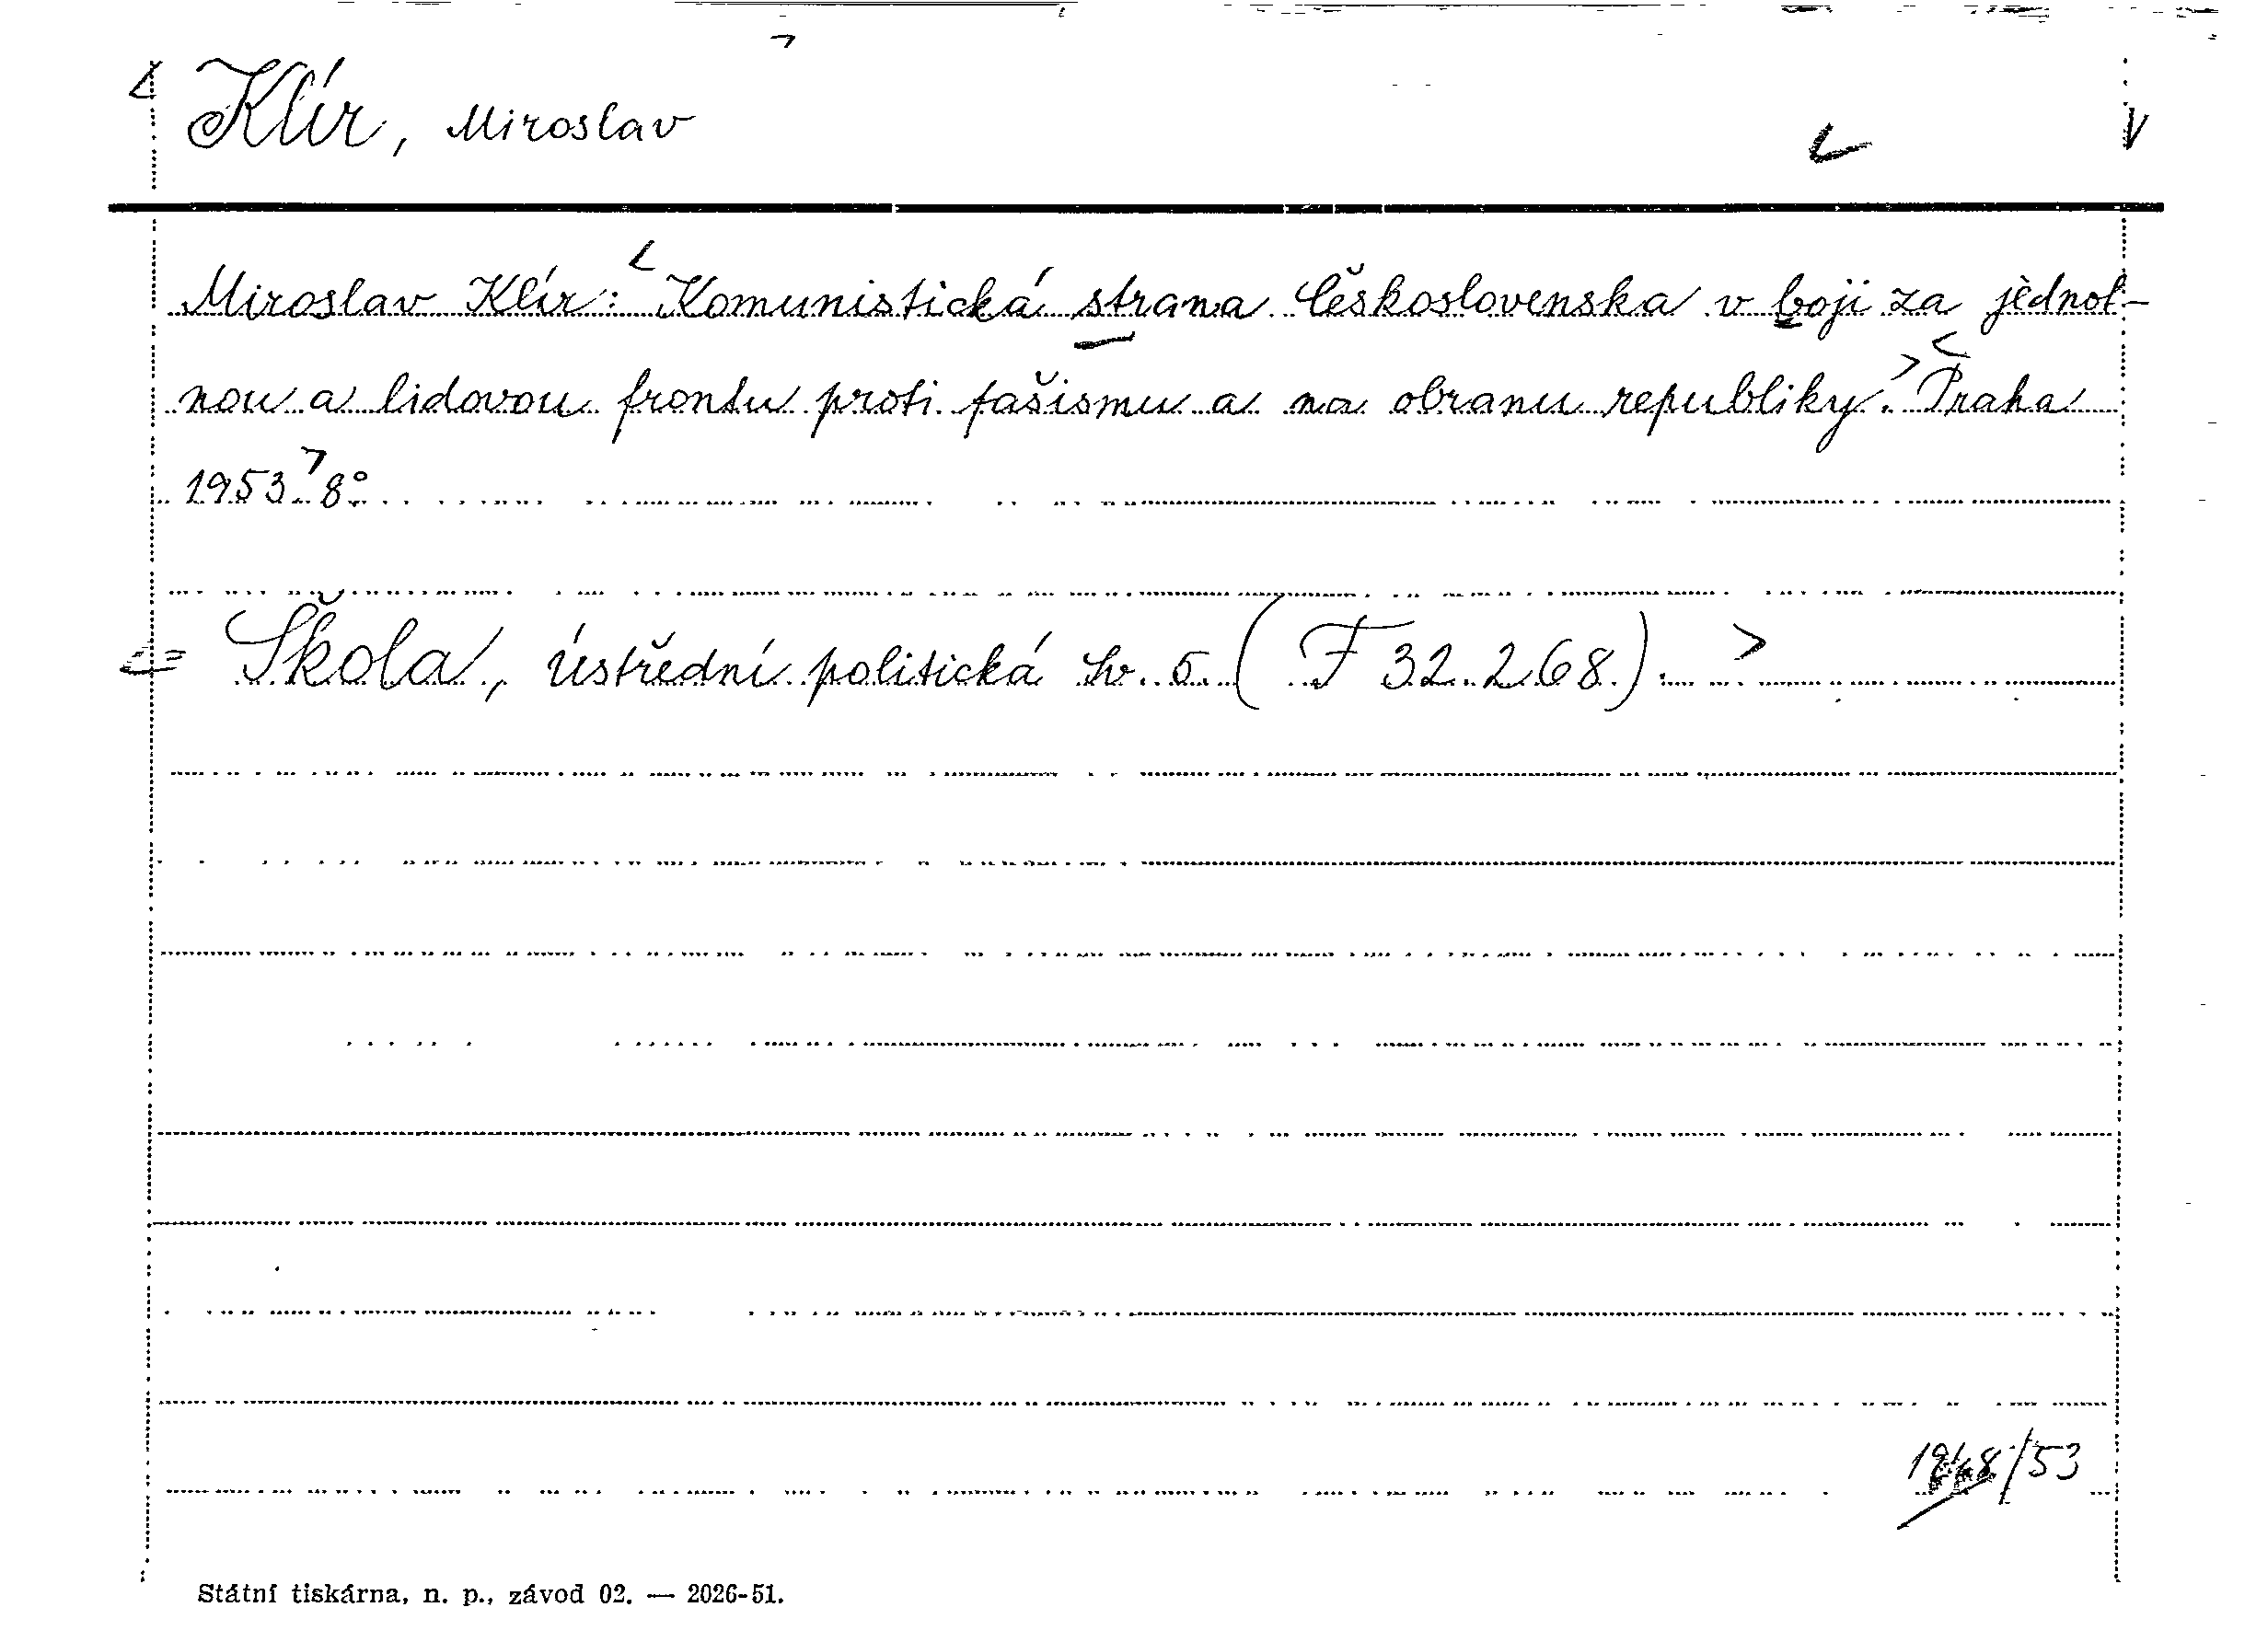 Klír, Miroslav
Miroslav Klír: Komunistická strana Československa v boji za jednot-
nou a lidovou frontu proti fašismu a na obranu republiky. Praha
1953. 8°.
= Škola, ústřední politická sv. 5. (F 32.268).
/53
Státní tiskárna, n. p., závod 02. — 2026-51.